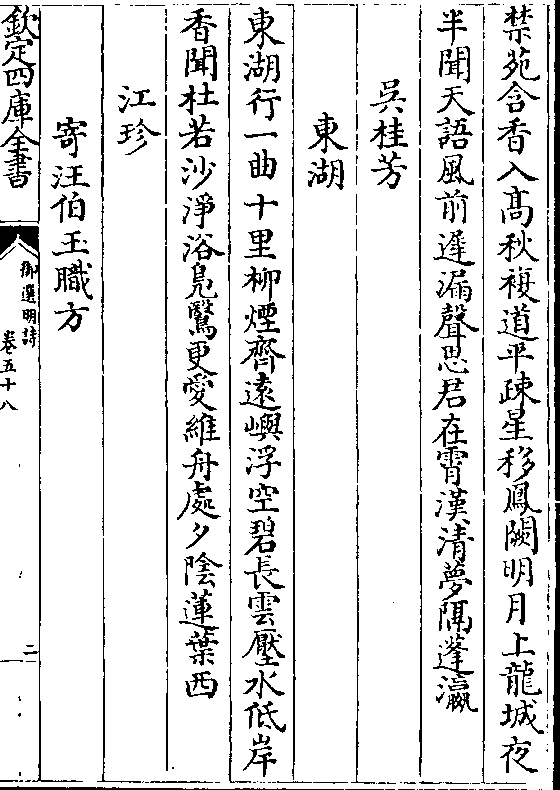 禁苑含香入髙秋複道平疎星移鳳闕明月上龍城夜
半聞天語風前遲漏聲思君在霄漢清夢隔蓬瀛
吳桂芳
東湖
東湖行一曲十里柳煙齊遠嶼浮空碧長雲壓水低岸
香聞杜若沙淨浴鳬鷖更愛維舟處夕陰蓮葉西
江珍
寄汪伯玉職方
欽定四庫全書
御選明詩
卷五十八
二